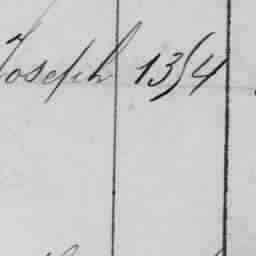 Joseph 13/4